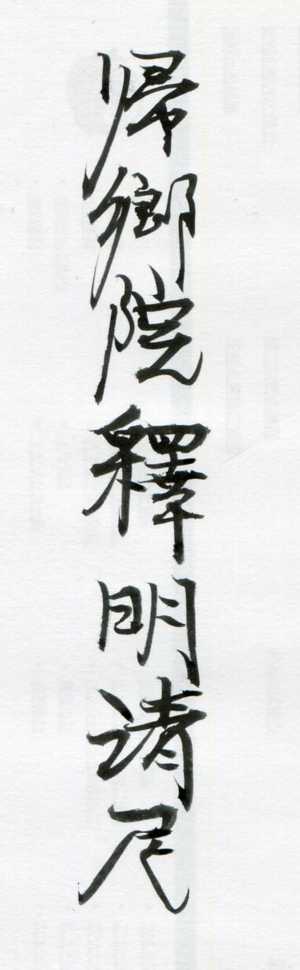 帰郷院釋明請尼